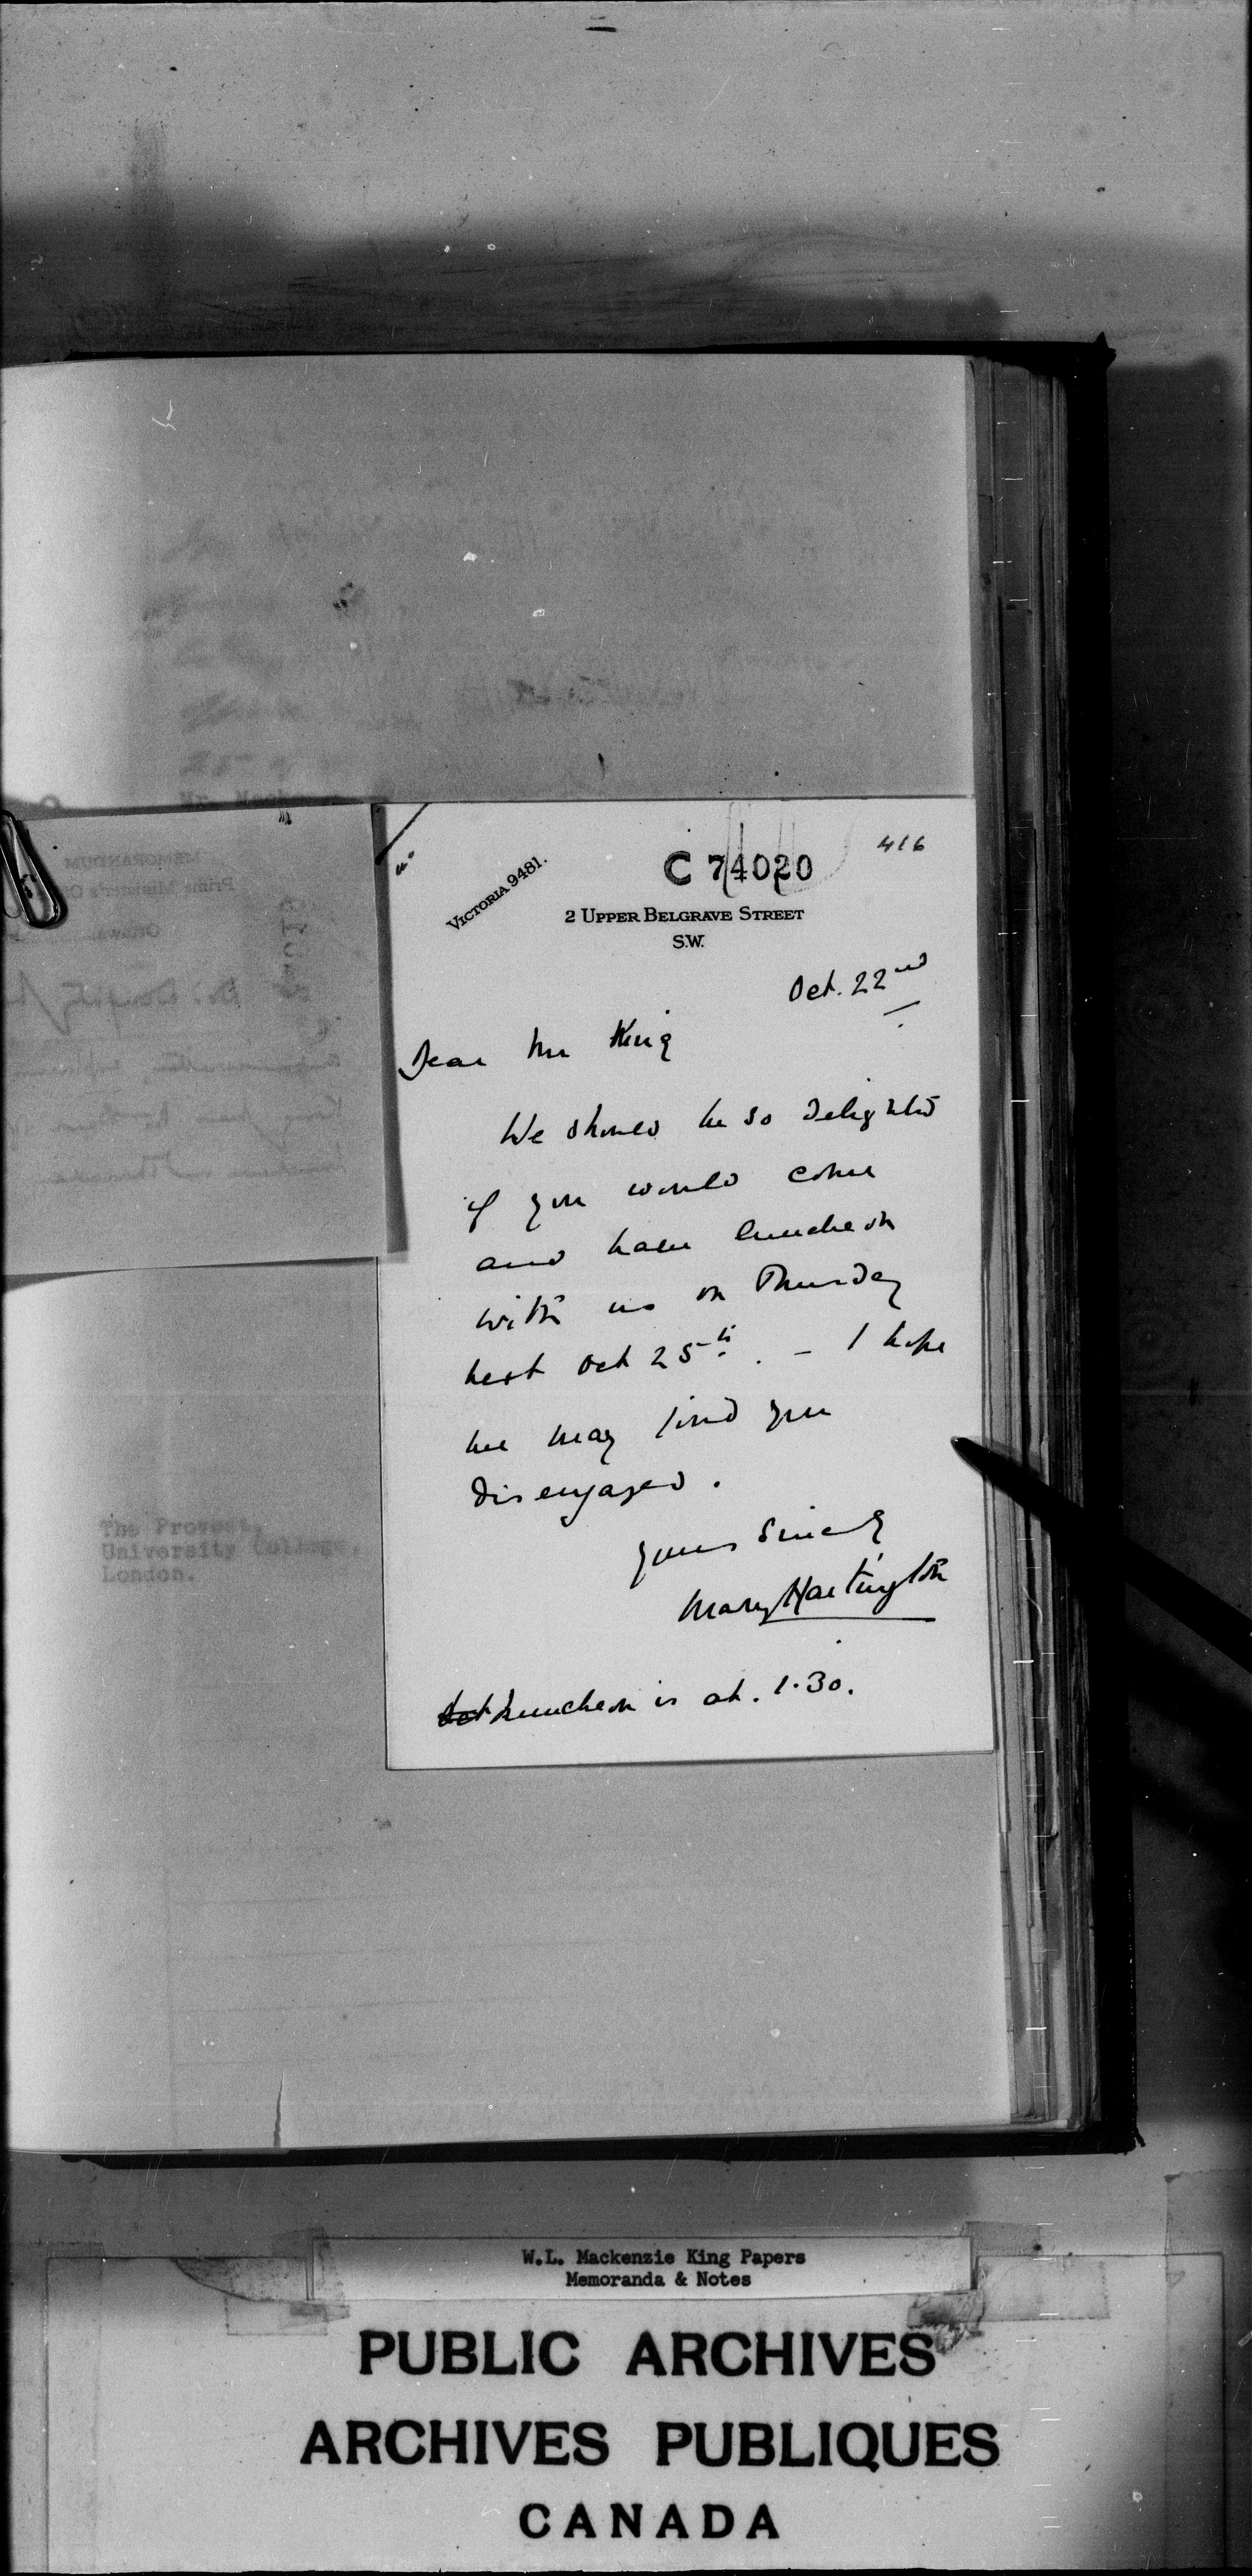 416
C 74020
VICTORIA 9481.
2 UPPER BELGRAVE STREET
S.W.
Oct. 22nd
Dear Mr King
We should be so delighted
if you would come
and have luncheon
with us on Thursday
next Oct 25th. - I hope
we may find you
disengaged.
Yours Sincerely
Mary Hartington
Luncheon is at. 1.30.
The Provost,
University College,
London.
W.L. Mackenzie King Papers
Memoranda & Notes
PUBLIC ARCHIVES
ARCHIVES PUBLIQUES
CANADA